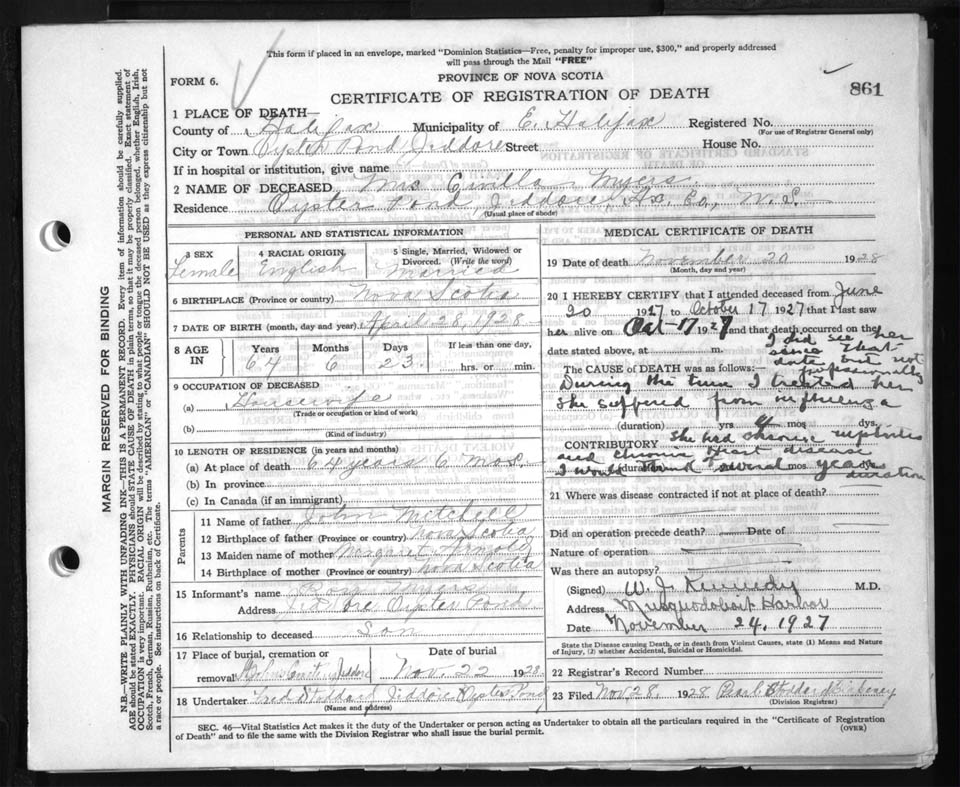 This form if placed in an envelope, marked "Dominion Statistics—Free, penalty for improper use, $300," and properly addressed
will pass through the Mail "FREE"
FORM 6.
PROVINCE OF NOVA SCOTIA
CERTIFICATE OF REGISTRATION OF DEATH
861
1 PLACE OF DEATH—
County of Halifax Municipality of E. Halifax Registered No.
(For use of Registrar General only)
City or Town Oyster Pond Jeddore Street House No.
If in hospital or institution, give name
2 NAME OF DECEASED Mrs Myers
Residence Oyster Pond, Jeddore, Hx. Co, N. S.
(Usual place of abode)
PERSONAL AND STATISTICAL INFORMATION
3 SEX 4 RACIAL ORIGIN 5 Single, Married, Widowed or
Divorced. (Write the word)
Female English Married
6 BIRTHPLACE (Province or country) Nova Scotia
7 DATE OF BIRTH (month, day and year) April 28, 1928
8 AGE IN Years Months Days If less than one day,
64 6 23 hrs. or min.
9 OCCUPATION OF DECEASED
(a) Housewife
(Trade or occupation or kind of work)
(b)
(Kind of industry)
10 LENGTH OF RESIDENCE (in years and months)
(a) At place of death 64 years 6 mos
(b) In province
(c) In Canada (if an immigrant)
Parents
11 Name of father John Mitchell
12 Birthplace of father (Province or country) Nova Scotia
13 Maiden name of mother Margaret Arnold
14 Birthplace of mother (Province or country) Nova Scotia
15 Informant's name Myers
Address Jeddore Oyster Pond
16 Relationship to deceased Son
17 Place of burial, cremation or Date of burial
removal Jeddore Nov. 22 1928
18 Undertaker Fred Stoddard Jeddore Oyster Pond
(Name and address)
MEDICAL CERTIFICATE OF DEATH
19 Date of death November 20 1928
(Month, day and year)
20 I HEREBY CERTIFY that I attended deceased from June
20 1927 to October 17 1927 that I last saw
her alive on Oct-17 1927 and that death occurred on the
date stated above, at m.
I did see her
since that
date but not
professionally
The CAUSE of DEATH was as follows:—
During the time I treated her
she suffered from influenza
(duration) yrs mos. dys.
CONTRIBUTORY She had chronic nephritis
and chronic heart disease
I would of several years
duration
(duration) mos. dys.
21 Where was disease contracted if not at place of death?
Did an operation precede death? Date of
Nature of operation
Was there an autopsy?
(Signed) W. J. Kennedy M.D.
Address Musquodoboit Harbor
Date November 24. 1927
State the Disease causing Death, or in death from Violent Causes, state (1) Means and Nature
of Injury, (2) whether Accidental, Suicidal or Homicidal.
22 Registrar's Record Number
23 Filed Nov 28. 1928 Pearl Stoddard
(Division Registrar)
SEC. 46—Vital Statistics Act makes it the duty of the Undertaker or person acting as Undertaker to obtain all the particulars required in the "Certificate of Registration
of Death" and to file the same with the Division Registrar who shall issue the burial permit.
(OVER)
MARGIN RESERVED FOR BINDING
N.B.—WRITE PLAINLY WITH UNFADING INK—THIS IS A PERMANENT RECORD. Every item of information should be carefully supplied.
AGE should be stated EXACTLY. PHYSICIANS should STATE CAUSE OF DEATH in plain terms, so that it may be properly classified. Exact statement of
OCCUPATION is very important. RACIAL ORIGIN will be described by stating to what people or tongue the deceased person belonged, whether English, Irish,
Scotch, French, German, Russian, Ruthenian, etc. The terms "AMERICAN" or "CANADIAN" SHOULD NOT BE USED as they express citizenship but not
a race or people. See instructions on back of Certificate.